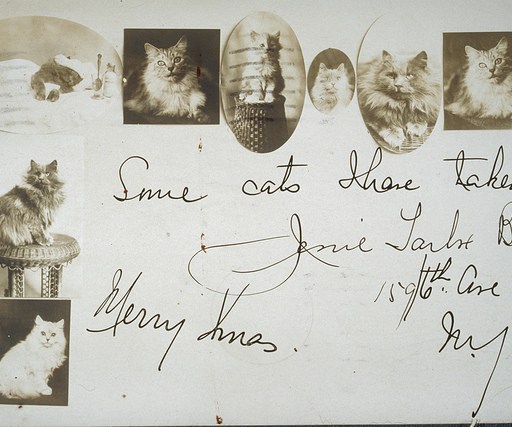 Some cats I have taken
Jessie Tarbox B
159 6th. Ave
Merry Xmas.
N.Y